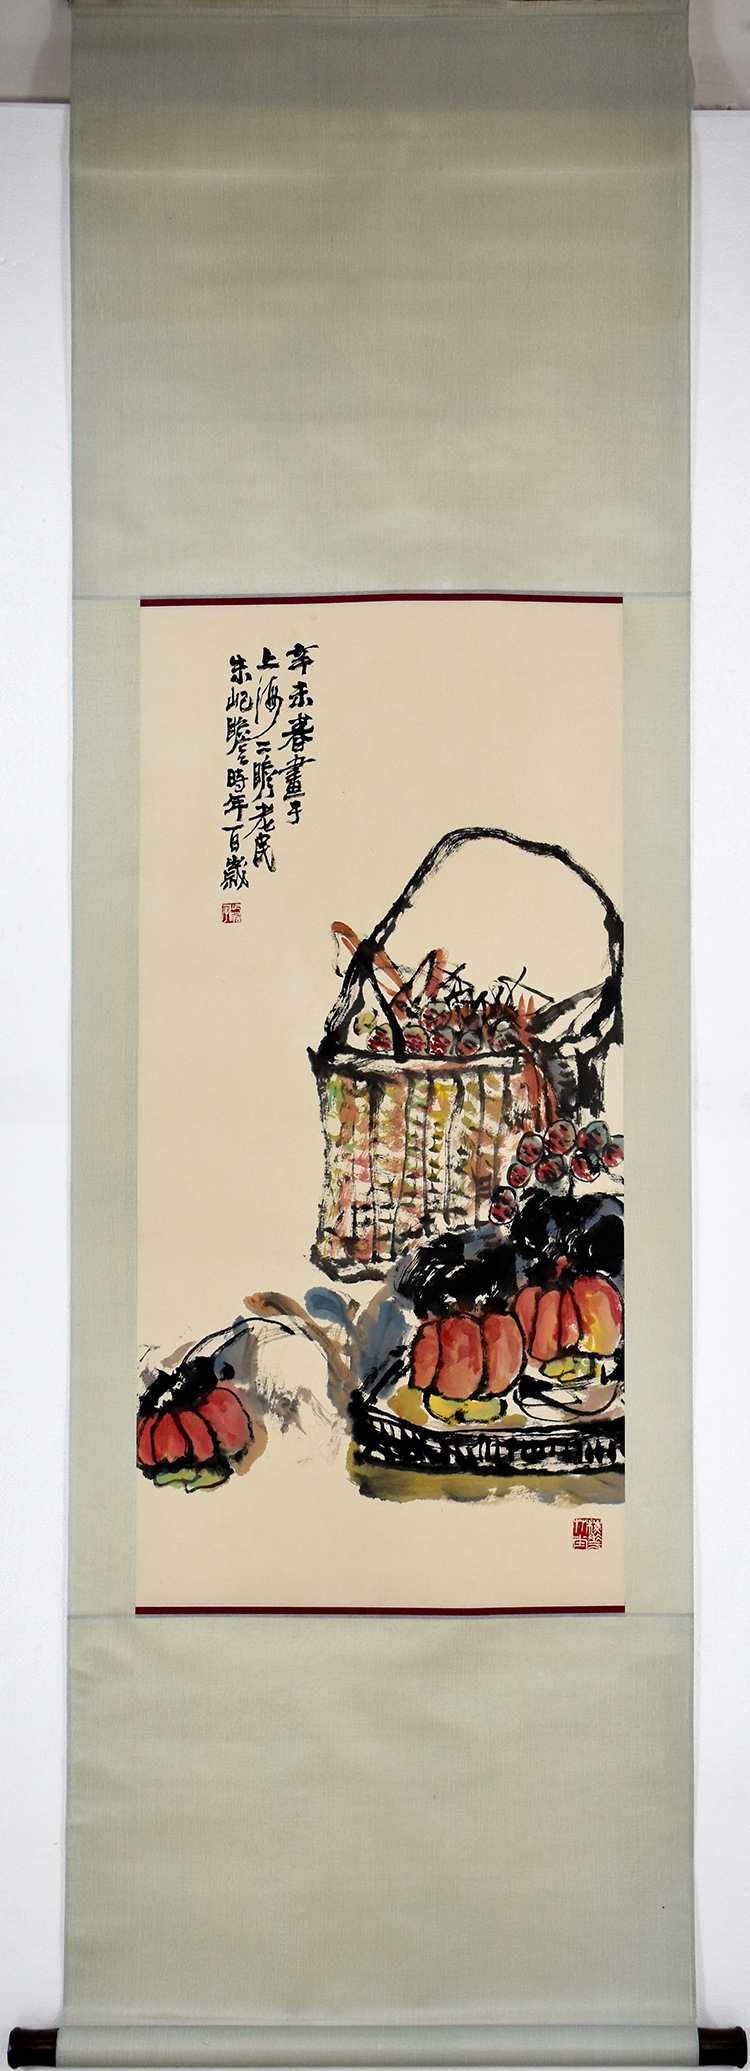 辛未春畫于
上海二瞻老民
朱屺瞻時年百歲